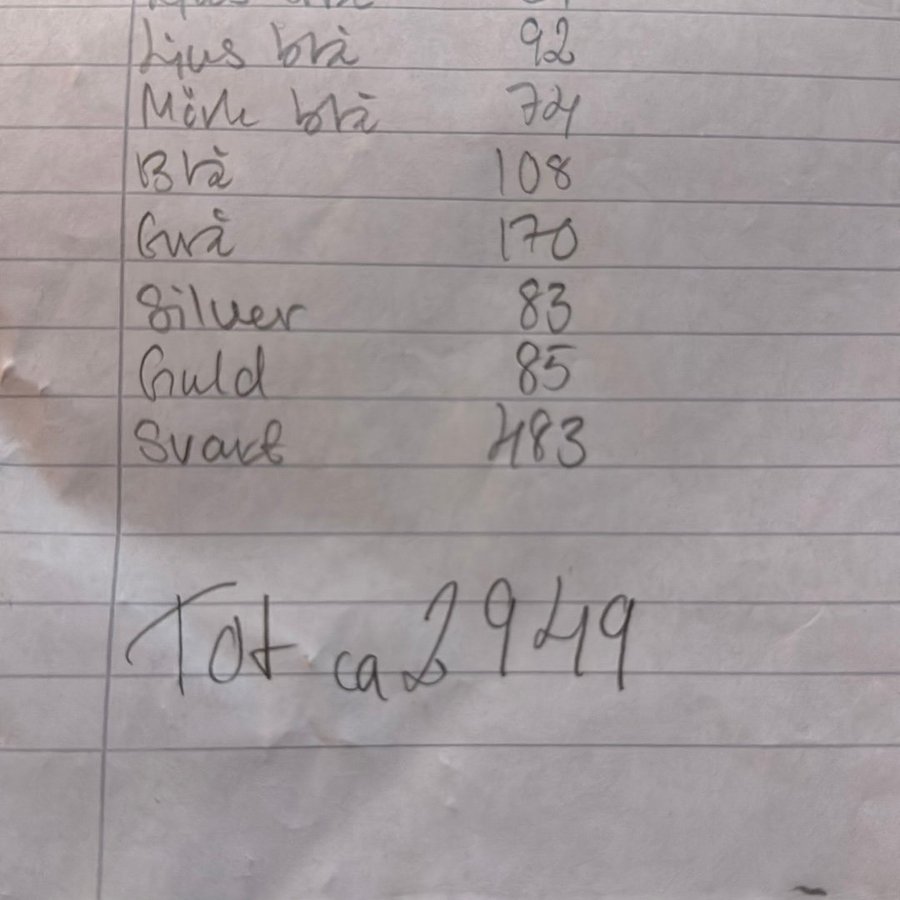 Ljus blå 92
Mörk blå 74
Blå 108
Grå 170
Silver 83
Guld 85
Svart 483
Tot ca 2949